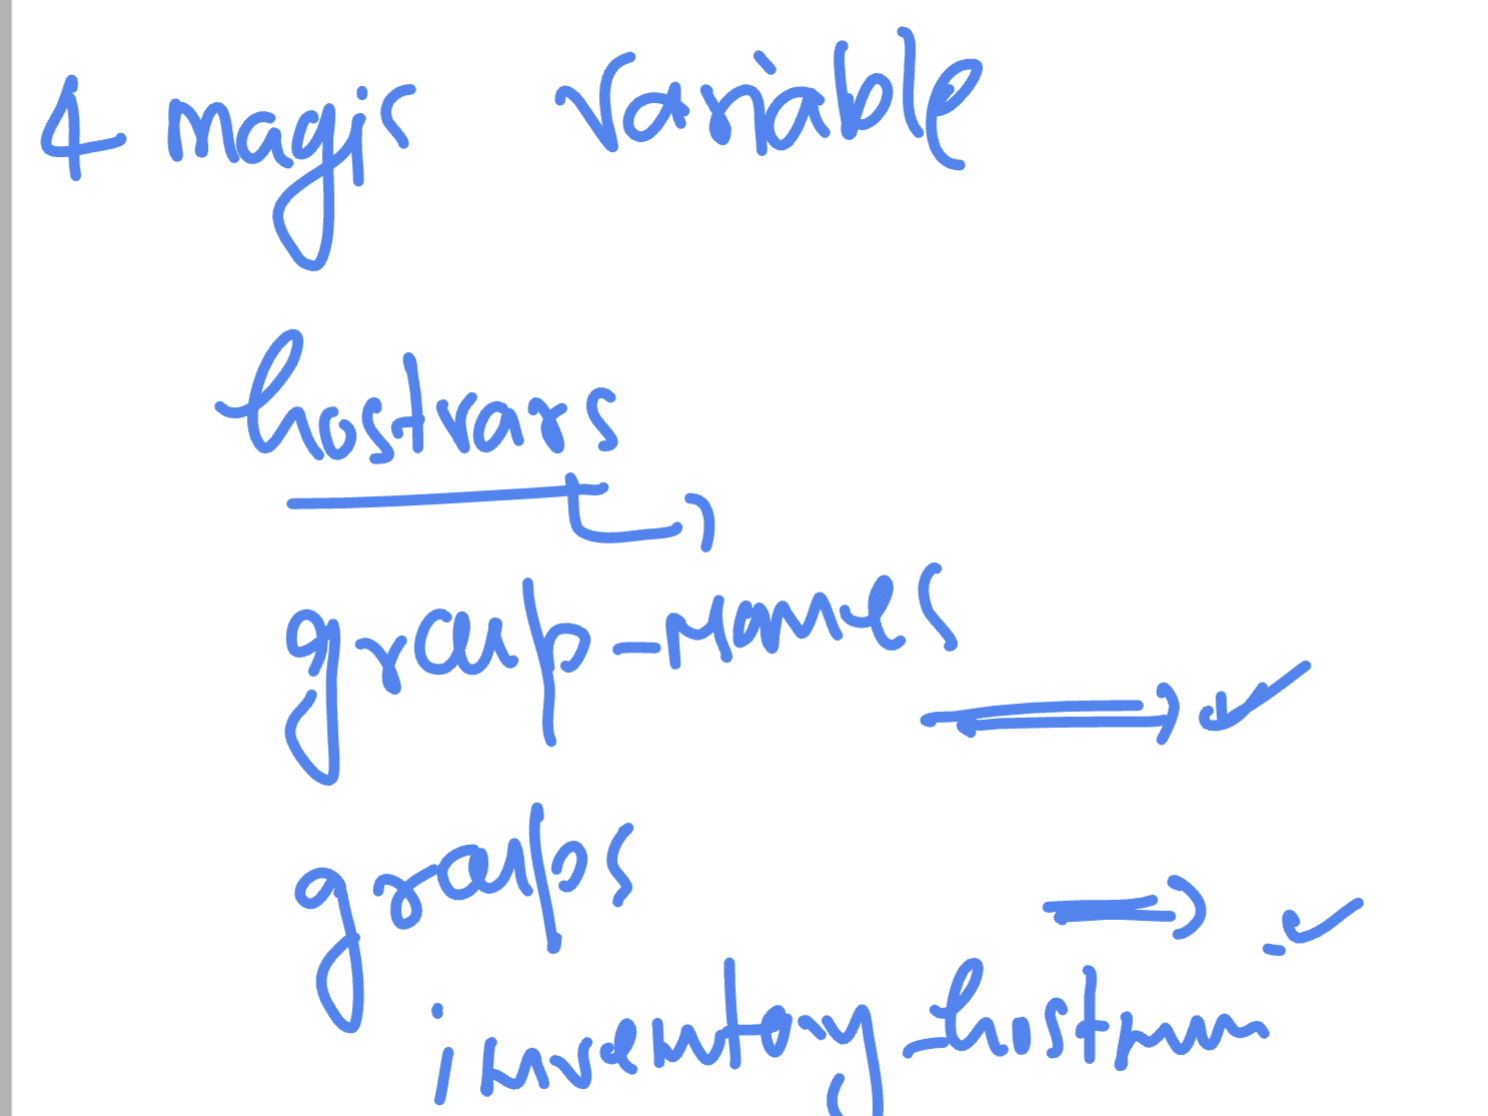 4 magic variable
hostvars
group-names
groups
inventory_hostnam